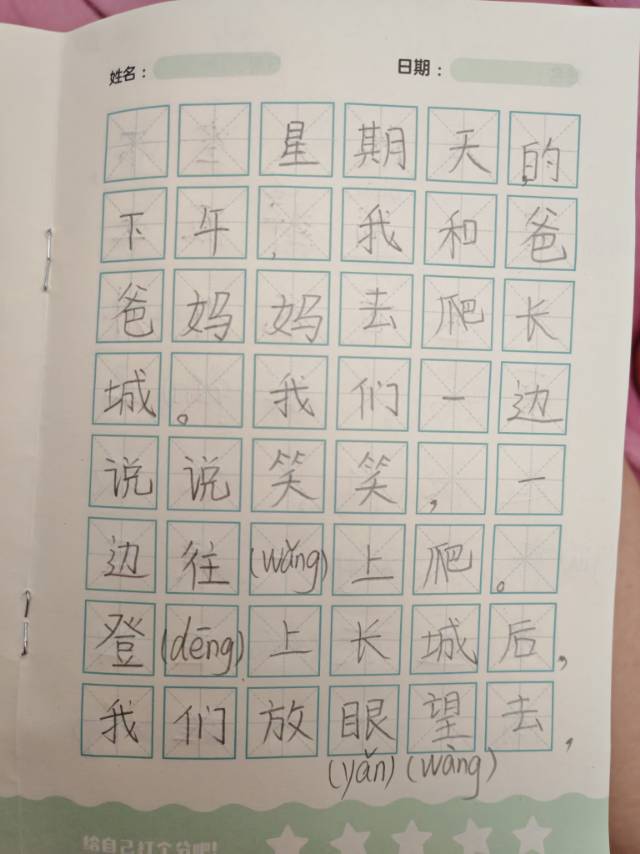 姓名： 日期：
星期天的
下午，我和爸
爸妈妈去爬长
城。我们一边
说说笑笑，一
边往(wǎng)上爬。
登(dēng)上长城后，
我们放眼望去，
(yǎn)(wàng)
给自己打个分吧！